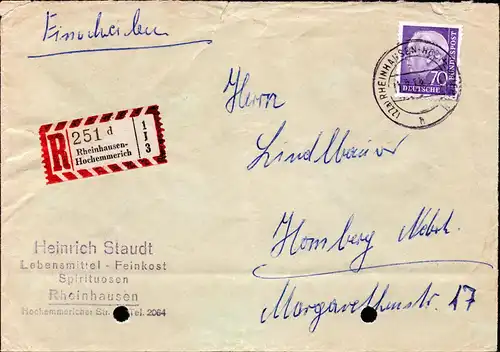 Einschreiben
70
DEUTSCHE
BUNDESPOST
(22a) RHEINHAUSEN-
h
R
251 d
Rheinhausen-
Hochemmerich
1
1
3
Herrn
Lindlbauer
Homberg Ndrh.
Margarethenstr. 17
Heinrich Staudt
Lebensmittel - Feinkost
Spirituosen
Rheinhausen
Hochemmericher Str. Tel. 2064